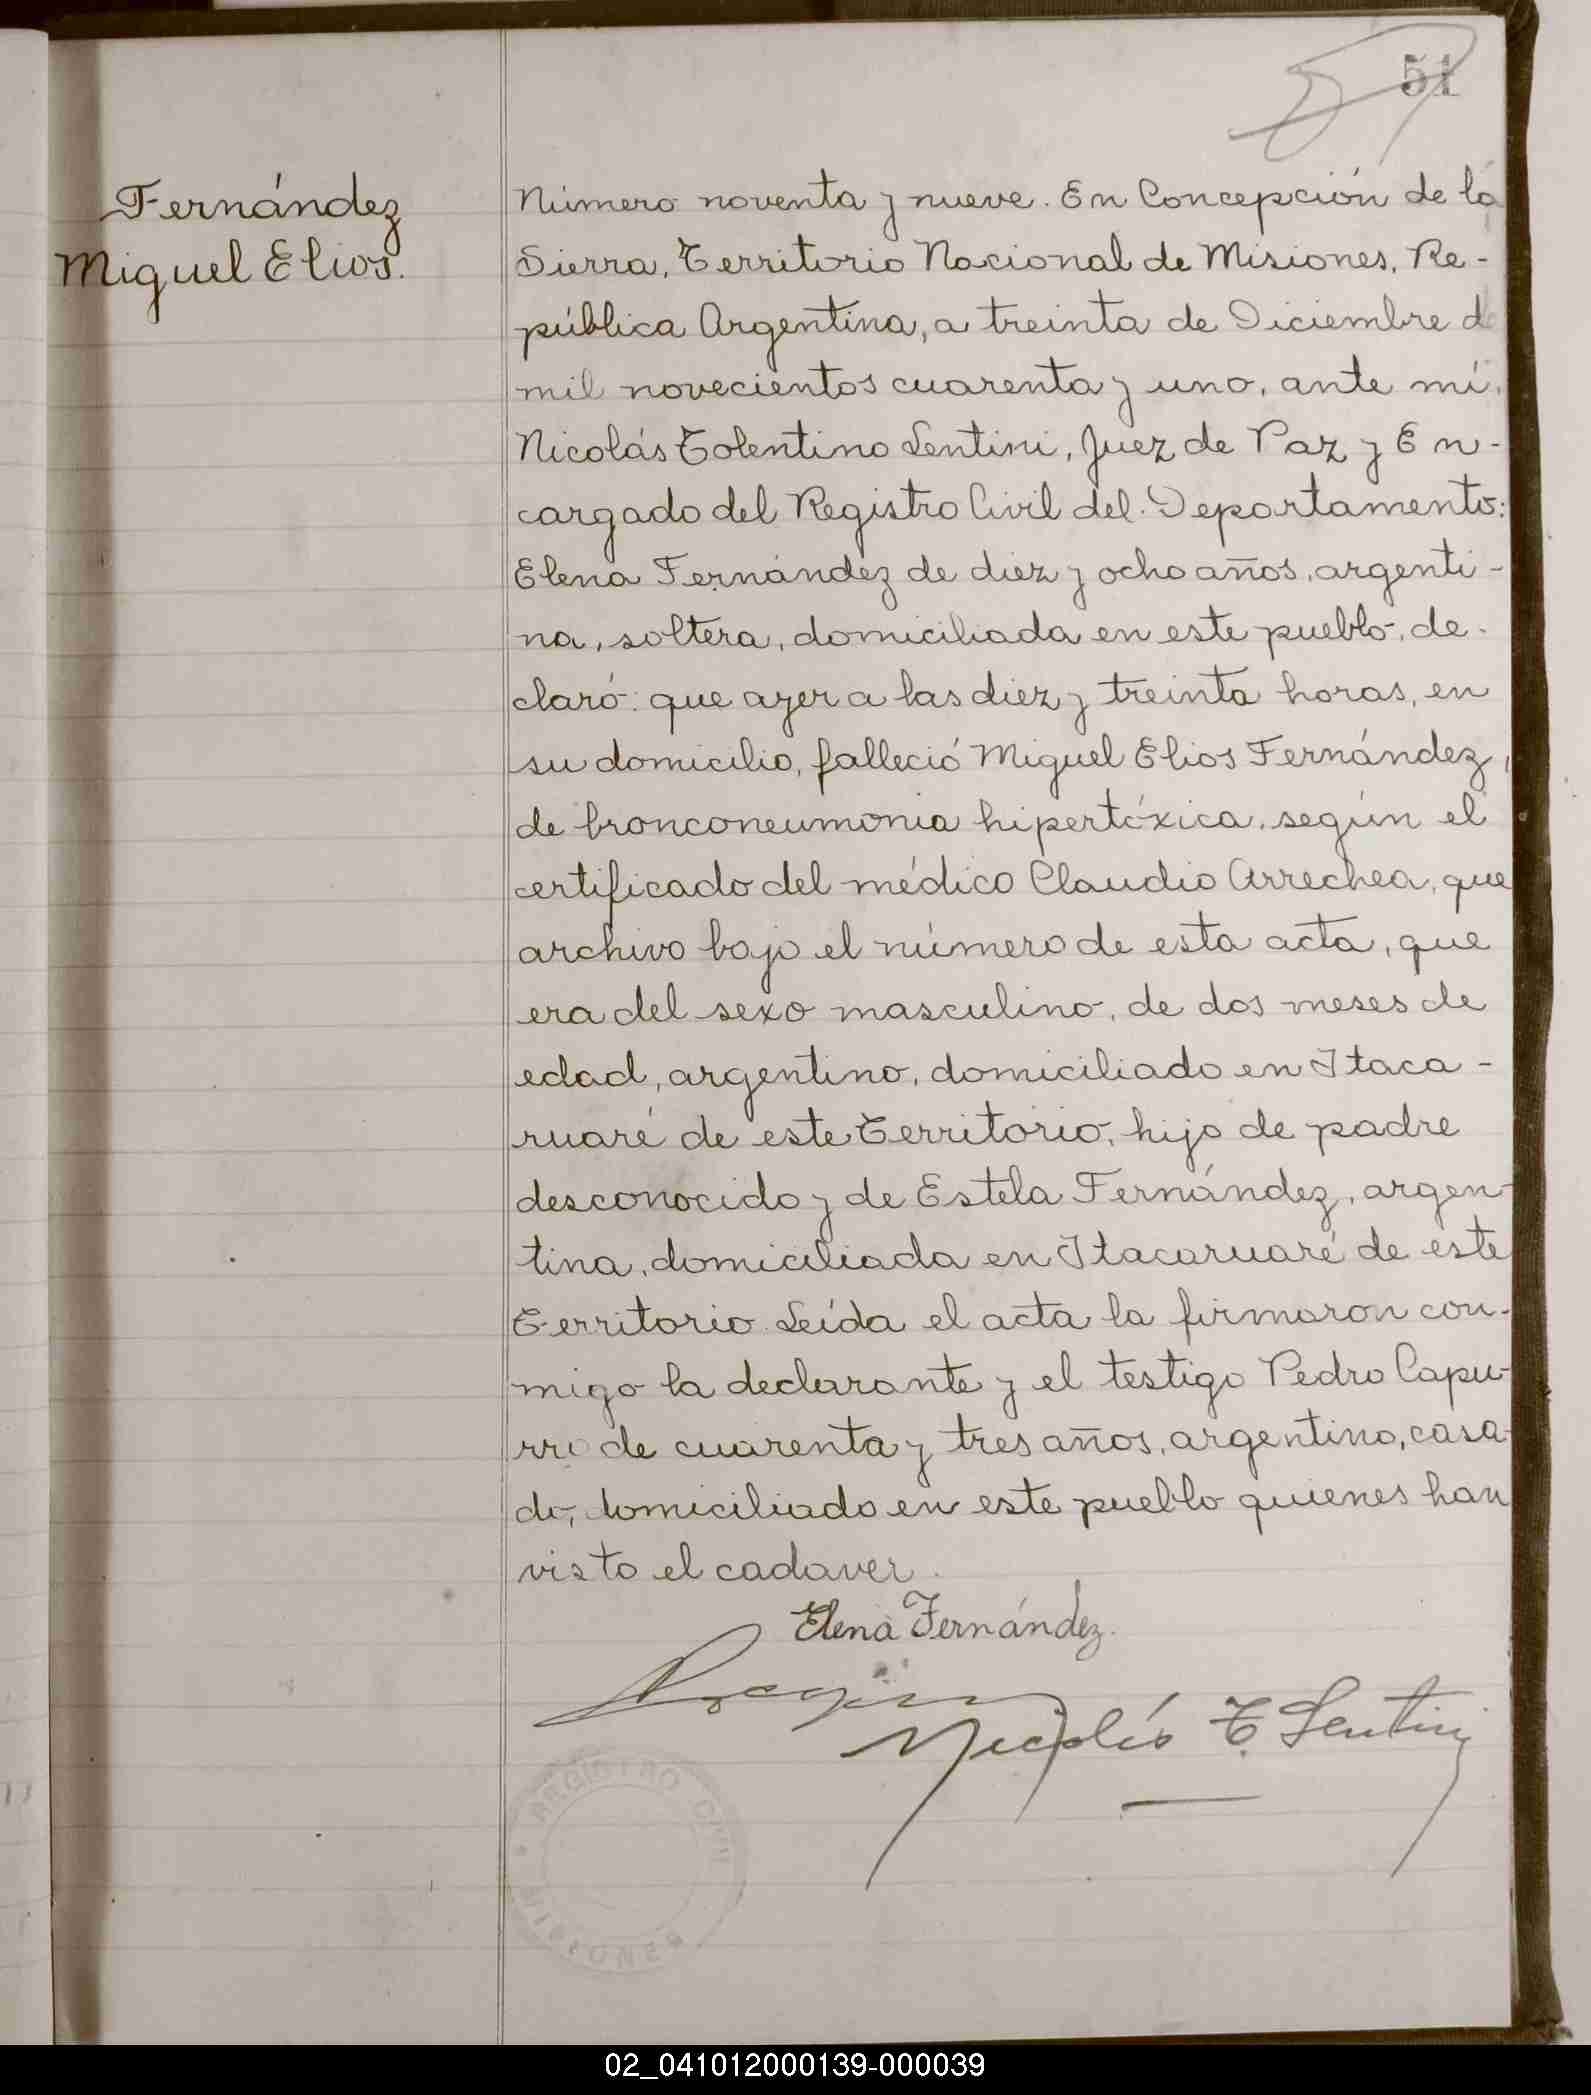 51
Fernández
Miguel Elios.
Número noventa y nueve. En Concepción de la
Sierra, Territorio Nacional de Misiones, Re-
pública Argentina, a treinta de Diciembre de
mil novecientos cuarenta y uno, ante mí,
Nicolás Tolentino Lentini, Juez de Paz y En-
cargado del Registro Civil del Departamento:
Elena Fernández de diez y ocho años, argenti-
na, soltera, domiciliada en este pueblo, de-
claró: que ayer a las diez y treinta horas, en
su domicilio, falleció Miguel Elios Fernández,
de bronconeumonia hipertóxica, según el
certificado del médico Claudio Arrechea, que
archivo bajo el número de esta acta, que
era del sexo masculino, de dos meses de
edad, argentino, domiciliado en Itaca-
ruaré de este Territorio, hijo de padre
desconocido y de Estela Fernández, argen-
tina, domiciliada en Itacaruaré de este
Territorio. Leída el acta la firmaron con-
migo la declarante y el testigo Pedro Capu-
rro de cuarenta y tres años, argentino, casa-
do, domiciliado en este pueblo quienes han
visto el cadaver.
Elena Fernández.
Nicolás T. Lentini
REGISTRO CIVIL
MISIONES
02_041012000139-000039